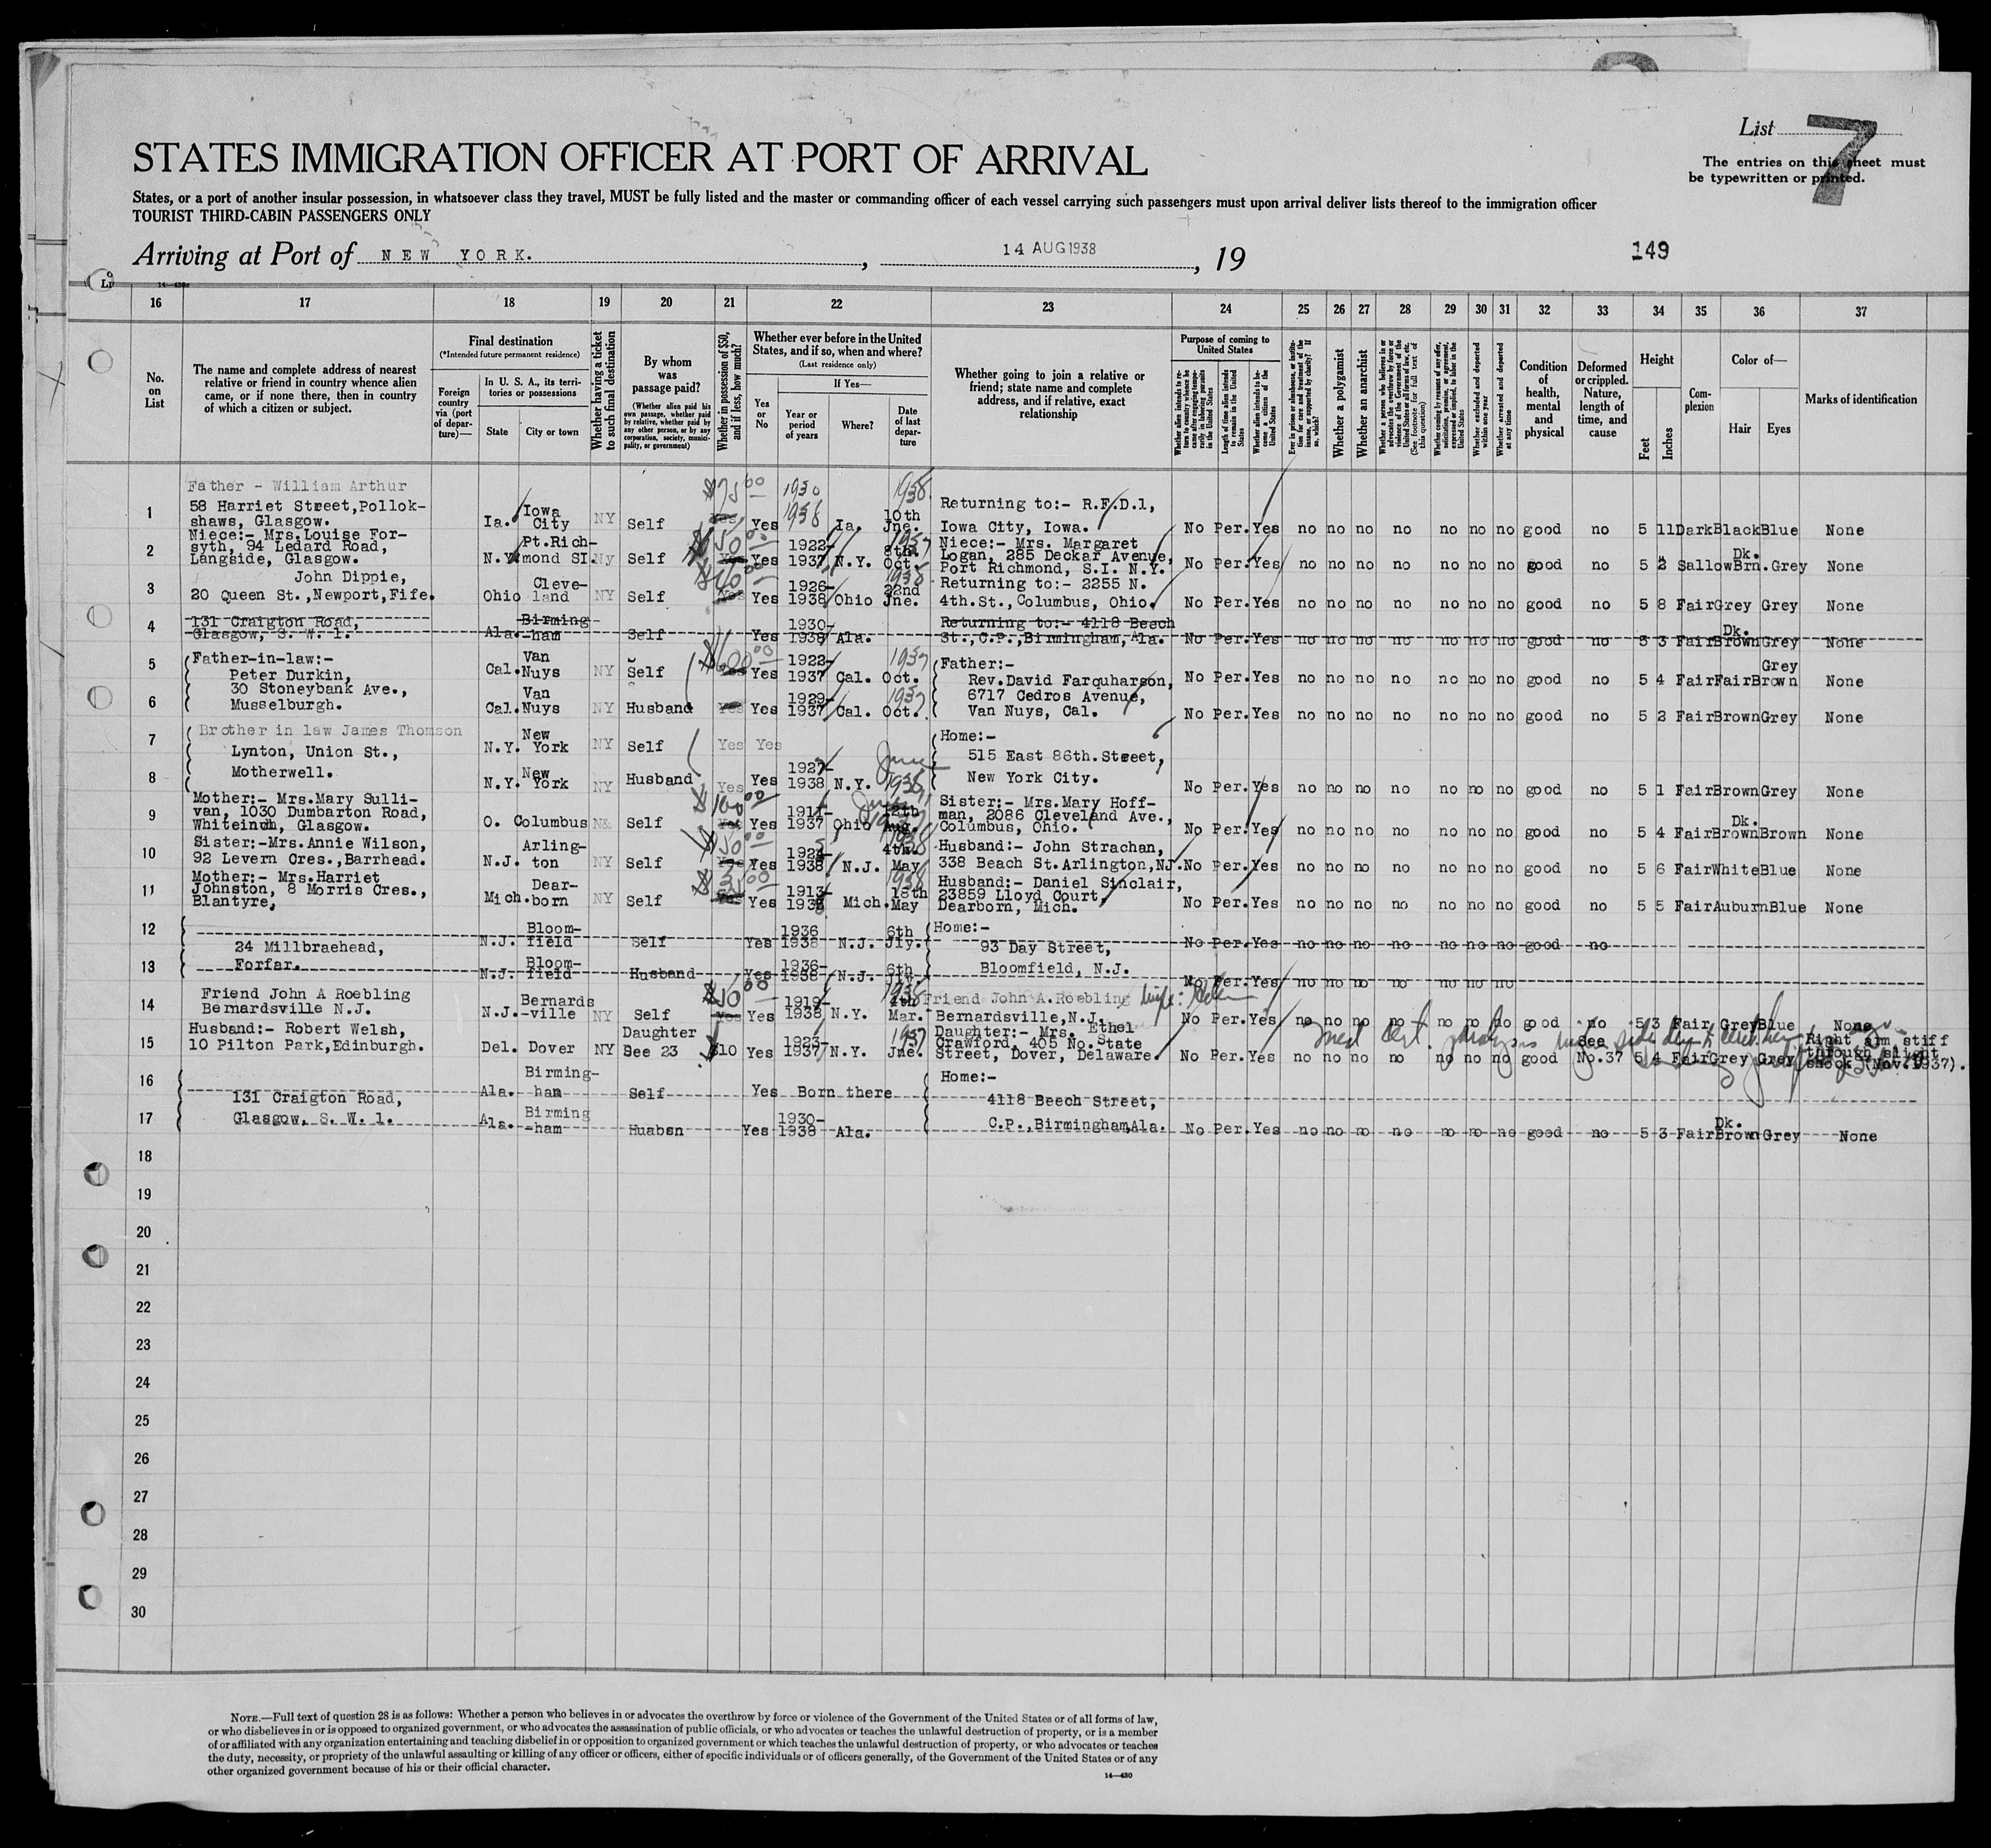 List 7
STATES IMMIGRATION OFFICER AT PORT OF ARRIVAL
The entries on this sheet must
be typewritten or printed.
States, or a port of another insular possession, in whatsoever class they travel, MUST be fully listed and the master or commanding officer of each vessel carrying such passengers must upon arrival deliver lists thereof to the immigration officer
TOURIST THIRD-CABIN PASSENGERS ONLY
Arriving at Port of NEW YORK. , 14 AUG 1938 , 19
149
16 17 18 19 20 21 22 23 24 25 26 27 28 29 30 31 32 33 34 35 36 37
No. on List
The name and complete address of nearest relative or friend in country whence alien came, or if none there, then in country of which a citizen or subject.
Final destination
(*Intended future permanent residence)
Foreign country via (port of departure)—
In U. S. A., its territories or possessions
State
City or town
Whether having a ticket to such final destination
By whom was passage paid?
(Whether alien paid his own passage, whether paid by relative, whether paid by any other person, or by any corporation, society, municipality, or government)
Whether in possession of $50, and if less, how much?
Whether ever before in the United States, and if so, when and where?
(Last residence only)
Yes or No
If Yes—
Year or period of years
Where?
Date of last departure
Whether going to join a relative or friend; state name and complete address, and if relative, exact relationship
Purpose of coming to United States
Length of time alien intends to remain in the United States
Whether alien intends to become a citizen of the United States
Whether a polygamist
Whether an anarchist
Whether excluded and deported within one year
Whether arrested and deported at any time
Condition of health, mental and physical
Deformed or crippled. Nature, length of time, and cause
Height
Feet
Inches
Complexion
Color of—
Hair
Eyes
Marks of identification
Father - William Arthur
1 58 Harriet Street,Pollok-
shaws, Glasgow. Ia. Iowa City NY Self $75 00 Yes Yes 1930 1938 Ia. 10th Jne. 1938 Returning to:- R.F.D.1,
Iowa City, Iowa. No Per. Yes no no no no no no no good no 5 11 Dark Black Blue None
2 Niece:- Mrs.Louise For-
syth, 94 Ledard Road,
Langside, Glasgow. N.Y. Pt.Rich-
mond SI. Ny Self $50 00 Yes Yes 1922-
1937 N.Y. 8th. Oct. 1937 Niece:- Mrs. Margaret
Logan, 285 Deckar Avenue,
Port Richmond, S.I. N.Y. No Per. Yes no no no no no no no good no 5 2 Sallow Dk. Brn. Grey None
3 John Dippie,
20 Queen St.,Newport,Fife. Ohio Cleve-
land NY Self Yes Yes 1926-
1938 Ohio 22nd Jne. 1938 Returning to:- 2255 N.
4th.St.,Columbus, Ohio. No Per. Yes no no no no no no no good no 5 8 Fair Grey Grey None
4 131 Craigton Road,
Glasgow, S. W. 1. Ala. Birming-
-ham Self Yes 1930-
1938 Ala. Returning to:- 4118 Beech
St.,C.P.,Birmingham,Ala. No Per. Yes no no no no no no no good no 5 3 Fair Dk. Brown Grey None
5 Father-in-law:-
Peter Durkin,
30 Stoneybank Ave.,
Musselburgh. Cal. Van
Nuys NY Self $600 00 Yes Yes 1922-
1937 Cal. Oct. 1937 Father:-
Rev.David Farquharson,
6717 Cedros Avenue,
Van Nuys, Cal. No Per. Yes no no no no no no no good no 5 4 Fair Fair Grey Brown None
6 Cal. Van
Nuys NY Husband Yes Yes 1929-
1937 Cal. Oct. 1937 No Per. Yes no no no no no no no good no 5 2 Fair Brown Grey None
7 Brother in law James Thomson
Lynton, Union St.,
Motherwell. N.Y. New
York NY Self Yes Yes Home:-
515 East 86th.Street,
New York City.
8 N.Y. New
York NY Husband Yes Yes 1927-
1938 N.Y. June 1938 No Per. Yes no no no no no no no good no 5 1 Fair Brown Grey None
9 Mother:- Mrs.Mary Sulli-
van, 1030 Dumbarton Road,
Whiteinch, Glasgow. O. Columbus Self $100 00 Yes Yes 1911-
1937 Ohio Aug. Sister:- Mrs.Mary Hoff-
man, 2086 Cleveland Ave.,
Columbus, Ohio. No Per. Yes no no no no no no no good no 5 4 Fair Dk. Brown Brown None
10 Sister:-Mrs.Annie Wilson,
92 Levern Cres.,Barrhead. N.J. Arling-
ton NY Self $50 00 Yes Yes 1924-
1938 N.J. 4th. May 1938 Husband:- John Strachan,
338 Beach St.Arlington,NJ. No Per. Yes no no no no no no no good no 5 6 Fair White Blue None
11 Mother:- Mrs.Harriet
Johnston, 8 Morris Cres.,
Blantyre, Mich. Dear-
born NY Self Yes Yes 1913-
1938 Mich. 18th May 1938 Husband:- Daniel Sinclair,
23859 Lloyd Court,
Dearborn, Mich. No Per. Yes no no no no no no no good no 5 5 Fair Auburn Blue None
12 24 Millbraehead,
Forfar. N.J. Bloom-
field Self Yes 1936
1938 N.J. 6th Jly. Home:-
93 Day Street,
Bloomfield, N.J. No Per. Yes no no no no no no no good no
13 N.J. Bloom-
field Husband Yes 1936-
1938 N.J. 6th Jly. No Per. Yes no no no no no no no
14 Friend John A Roebling
Bernardsville N.J. N.J. Bernards
-ville NY Self $10 00 Yes Yes 1919-
1938 N.Y. 4th Mar. 1938 Friend John A.Roebling
Bernardsville,N.J. No Per. Yes no no no no no no no good no 5 3 Fair Grey Blue None
15 Husband:- Robert Welsh,
10 Pilton Park,Edinburgh. Del. Dover NY Daughter
See 23 $10 Yes 1923-
1937 N.Y. Jne. 1937 Daughter:- Mrs. Ethel
Crawford, 405 No.State
Street, Dover, Delaware. No Per. Yes no no no no no no no good See
No.37 5 4 Fair Grey Grey Right arm stiff
through slight
shock (Nov.1937).
16 131 Craigton Road,
Glasgow, S. W. 1. Ala. Birming-
-ham Self Yes Born there Home:-
4118 Beech Street,
C.P.,Birmingham,Ala.
17 Ala. Birming
-ham Huabsn Yes 1930-
1938 Ala. No Per. Yes no no no no no no no good no 5 3 Fair Dk. Brown Grey None
18
19
20
21
22
23
24
25
26
27
28
29
30
NOTE.—Full text of question 28 is as follows: Whether a person who believes in or advocates the overthrow by force or violence of the Government of the United States or of all forms of law,
or who disbelieves in or is opposed to organized government, or who advocates the assassination of public officials, or who advocates or teaches the unlawful destruction of property, or is a member
of or affiliated with any organization entertaining and teaching disbelief in or opposition to organized government or which teaches the unlawful destruction of property, or who advocates or teaches
the duty, necessity, or propriety of the unlawful assaulting or killing of any officer or officers, either of specific individuals or of officers generally, of the Government of the United States or of any
other organized government because of his or their official character.
14—430